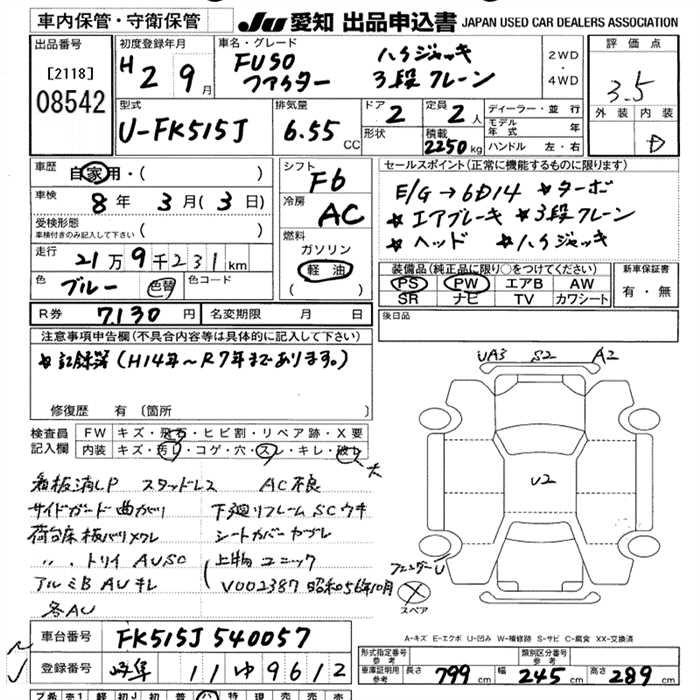 車内保管・守衛保管
JU 愛知 出品申込書 JAPAN USED CAR DEALERS ASSOCIATION
出品番号
[2118]
08542
初度登録年月
H 2 9月
車名・グレード
FUSO ハイジャッキ
ファイター 3段クレーン
2WD
・
4WD
評価点
3.5
外装 内装
D
型式
U-FK515J
排気量
6.55 CC
ドア 2
形状
定員 2人
積載 2250kg
ディーラー・並行
モデル年式 年
ハンドル 左・右
車歴 自家用・( )
車検 8年 3月(3日)
受検形態
車検付きのみ記入して下さい ( )
走行 21万9千231km
色 ブルー 色替 色コード
シフト
F6
冷房
AC
燃料
ガソリン
軽油
( )
セールスポイント(正常に機能するものに限ります)
E/G→6D14 ★ターボ
★エアブレーキ ★3段クレーン
★ヘッド ★ハイジャッキ
装備品(純正品に限り○をつけてください)
PS PW エアB AW
SR ナビ TV カワシート
新車保証書
有・無
R券 7,130円 名変期限 月 日
後日品
注意事項申告欄(不具合内容等は具体的に記入して下さい)
★記録簿(H14年~R7年まであります。)
修復歴 有〔箇所 〕
検査員
記入欄
FW キズ・飛石・ヒビ割・リペア跡・X要
内装 キズ・汚れ・コゲ・穴・スレ・キレ・破れ
大
看板消しP スタッドレス AC不良
サイドガード曲がり 下廻りフレームSCウキ
荷台床板バリメクレ シートカバーヤブレ
〃 、トリイAUSC 上物ユニック
アルミB AUキレ V002387 昭和56年10月
各AU
UA3 S2 A2
U2
フェンダーU
スペア
A-キズ E-エクボ U-凹み W-補修跡 S-サビ C-腐食 XX-交換済
車台番号 FK515J 540057
登録番号 岐阜 11 ゆ 9612
形式指定番号
参考
類別区分番号
参考
車庫証明用
参考
長さ 799cm 幅 245cm 高さ 289cm